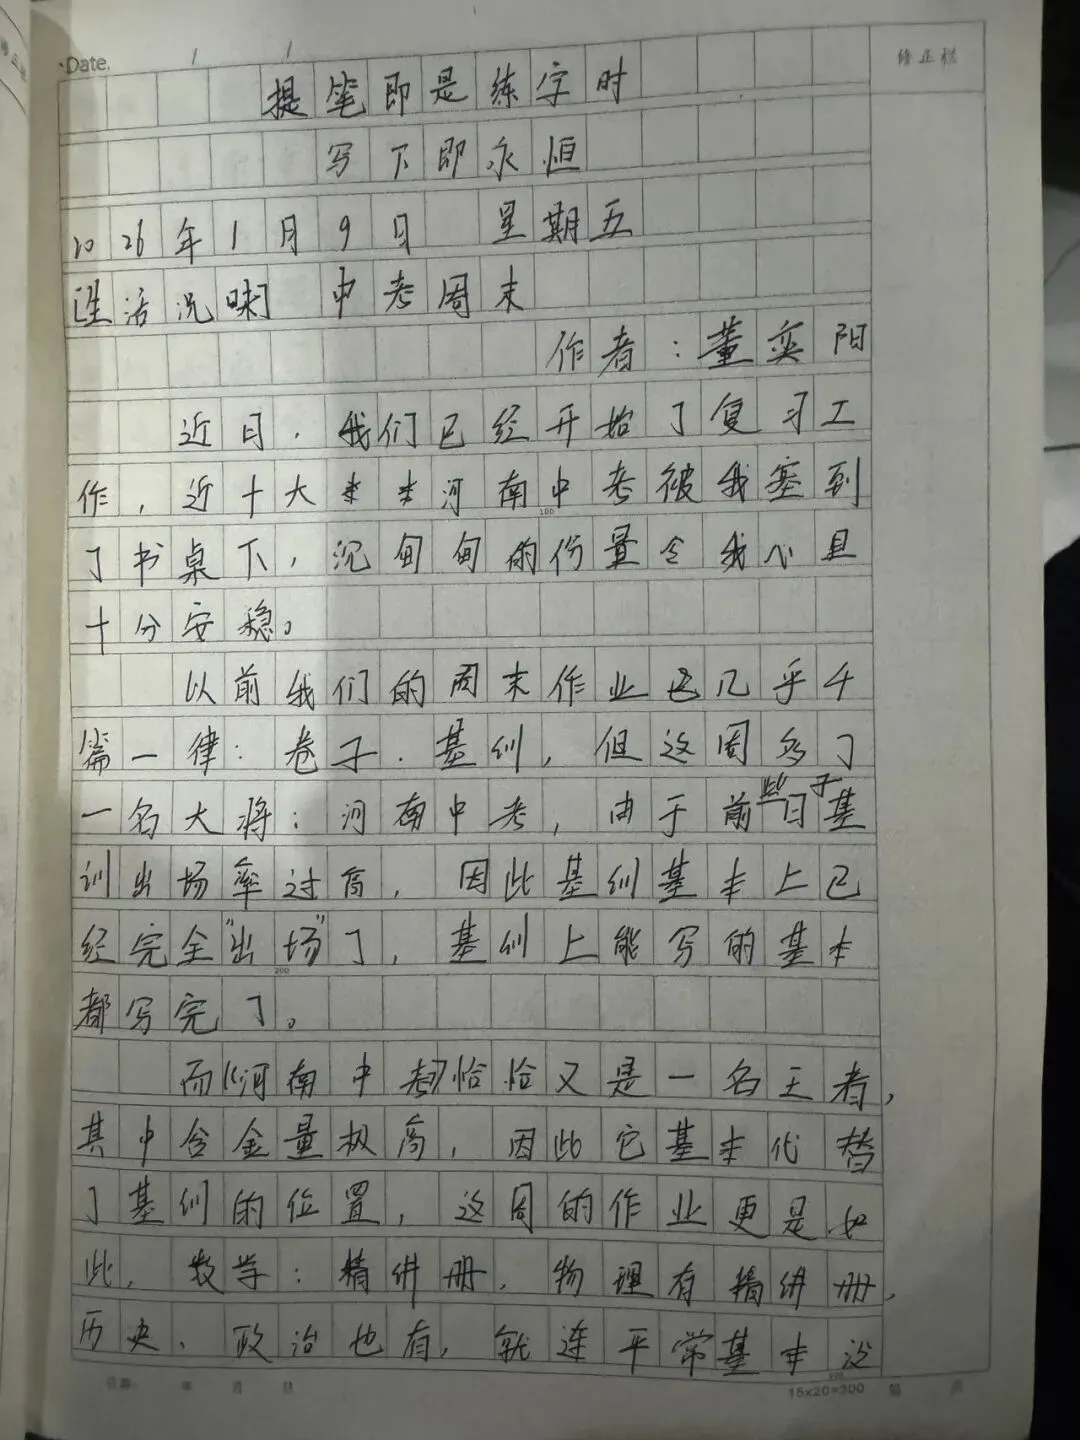 Date. / /
修正栏
提笔即是练字时
写下即永恒
2026年1月9日 星期五
[生活况味] 中考周末
作者：董奕阳
近日，我们已经开始了复习工
作，近十大本本河南中考被我塞到
了书桌下，沉甸甸的份量令我心里
十分安稳。
以前我们的周末作业已几乎千
篇一律：卷子、基训，但这周多了
一名大将：河南中考，由于前些日子基
训出场率过高，因此基训基本上已
经完全"出场"了，基训上能写的基本
都写完了。
而《河南中考》恰恰又是一名王者，
其中含金量极高，因此它基本代替
了基训的位置，这周的作业更是如
此，数学：精讲册，物理有精讲册，
历史、政治也有，就连平常基本没
年 月 日
15×20=300 第 页